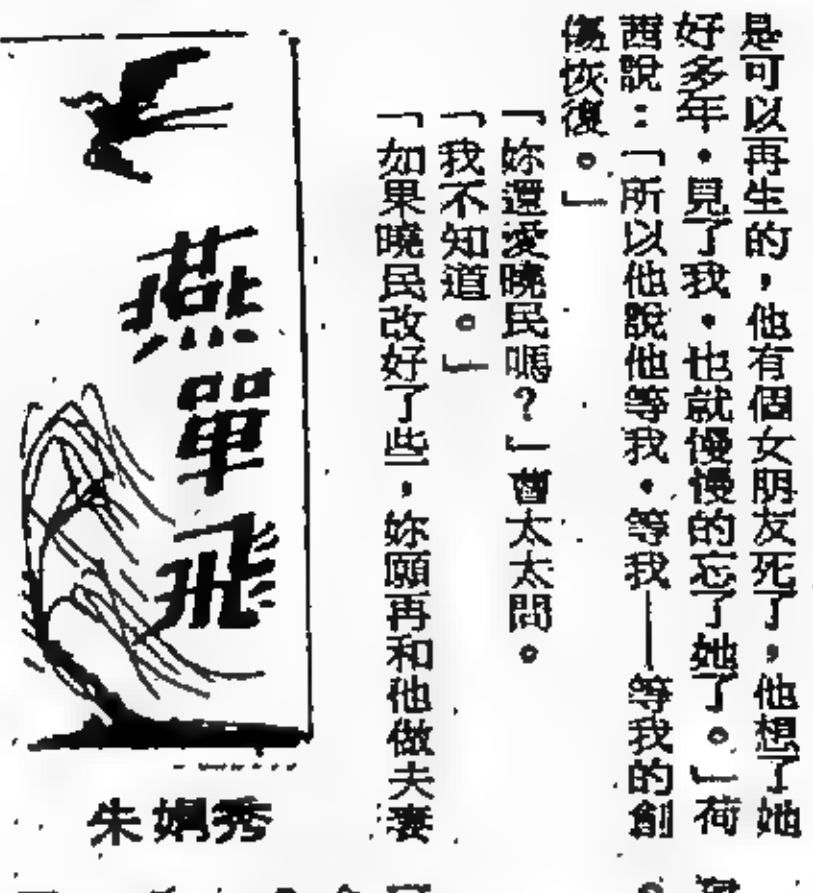 是可以再生的，他有個女朋友死了，他想了她
好多年，見了我，也就慢慢的忘了她了。」荷
茜說：「所以他說他等我，等我——等我的創
傷恢復。」
「妳還愛曉民嗎？」曹太太問。
「我不知道。」
「如果曉民改好了些，妳願再和他做夫妻
燕單飛
朱娟秀